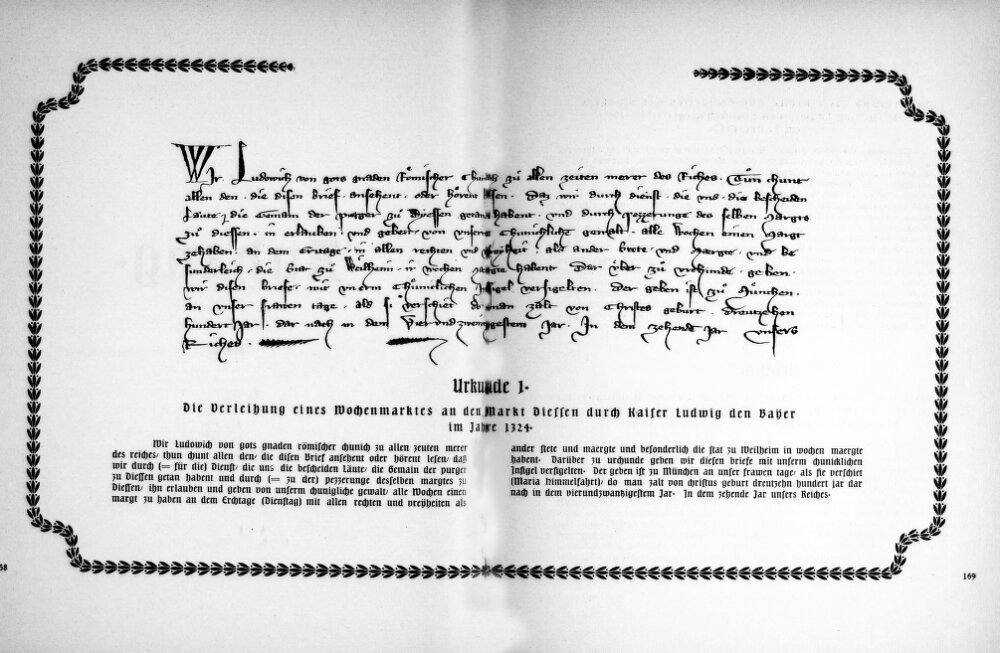 Wir Ludowich von gots gnaden Römischer Chunich zů allen zeiten merer des Riches. Tůn chunt
allen den. die disen brief. ansehent. oder hörent lesen. Daz wir durch dienst. die uns. die bescheiden
Laute. die Gemain der purger zů Dyessen getan habent. und durch pezzerunge des selben Margts
zů Diessen. in erlauben. und geben. von unserm Chunichliche gewalt. alle Wochen einen Margt
zehaben. an dem Eritage. in allen rechten und vreyheit. als ander stete. und Maergte. und be
sunderleich. die Stat zů Weilheim. in wochen maergte habent. Dar über zů urchunde. geben.
wir disen briefe. mit unserm Chunichlichen Insigel versigelten. Der geben ist zů München.
an unser frawen tage. als si verschiet do man zalt von Christes geburt. Dreutzehen
hundert Jar. dar nach in dem Vierundzwaingestem Jar. In dem zehend Jar unsers
Riches.
Urkunde 1.
Die Verleihung eines Wochenmarktes an den Markt Diessen durch Kaiser Ludwig den Bayer
im Jahre 1324.
Wir Ludowich von gots gnaden römischer chunich zu allen zeuten merer
des reiches, thun chunt allen den, die disen Brief ansehent oder hörent lesen, daß
wir durch (= für die) Dienst, die uns die bescheiden Läute, die Gemain der purger
zu Diessen getan habent und durch (= zu der) pezzerunge desselben margtes zu
Diessen, ihn erlauben und geben von unserm chunigliche gewalt, alle Wochen einen
margt zu haben an dem Erchtage (Dienstag) mit allen rechten und vreyheiten als
ander stete und maergte und besonderlich die stat zu Weilheim in wochen maergte
habent. Darüber zu urchunde geben wir diesen briefe mit unserm chuniclichen
Insigel versigelten. Der geben ist zu München an unser frawen tage, als sie verschiet
(Maria Himmelfahrt), do man zalt von christus geburt dreutzehn hundert jar dar
nach in dem vierundzwanzigestem Jar. In dem zehende Jar unsers Reiches.
68
169